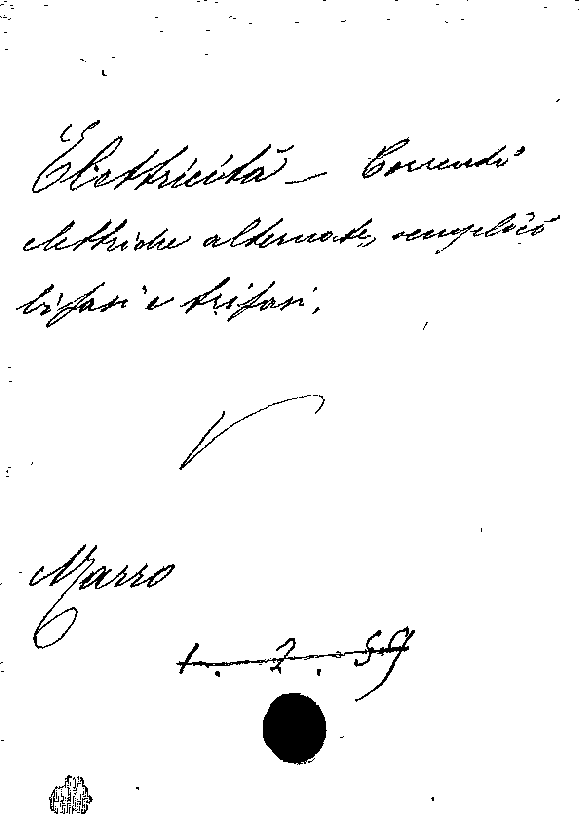 Elettricità – Correnti
elettriche alternate, semplici
bifasi e trifasi.
Marro
1. 2. 59